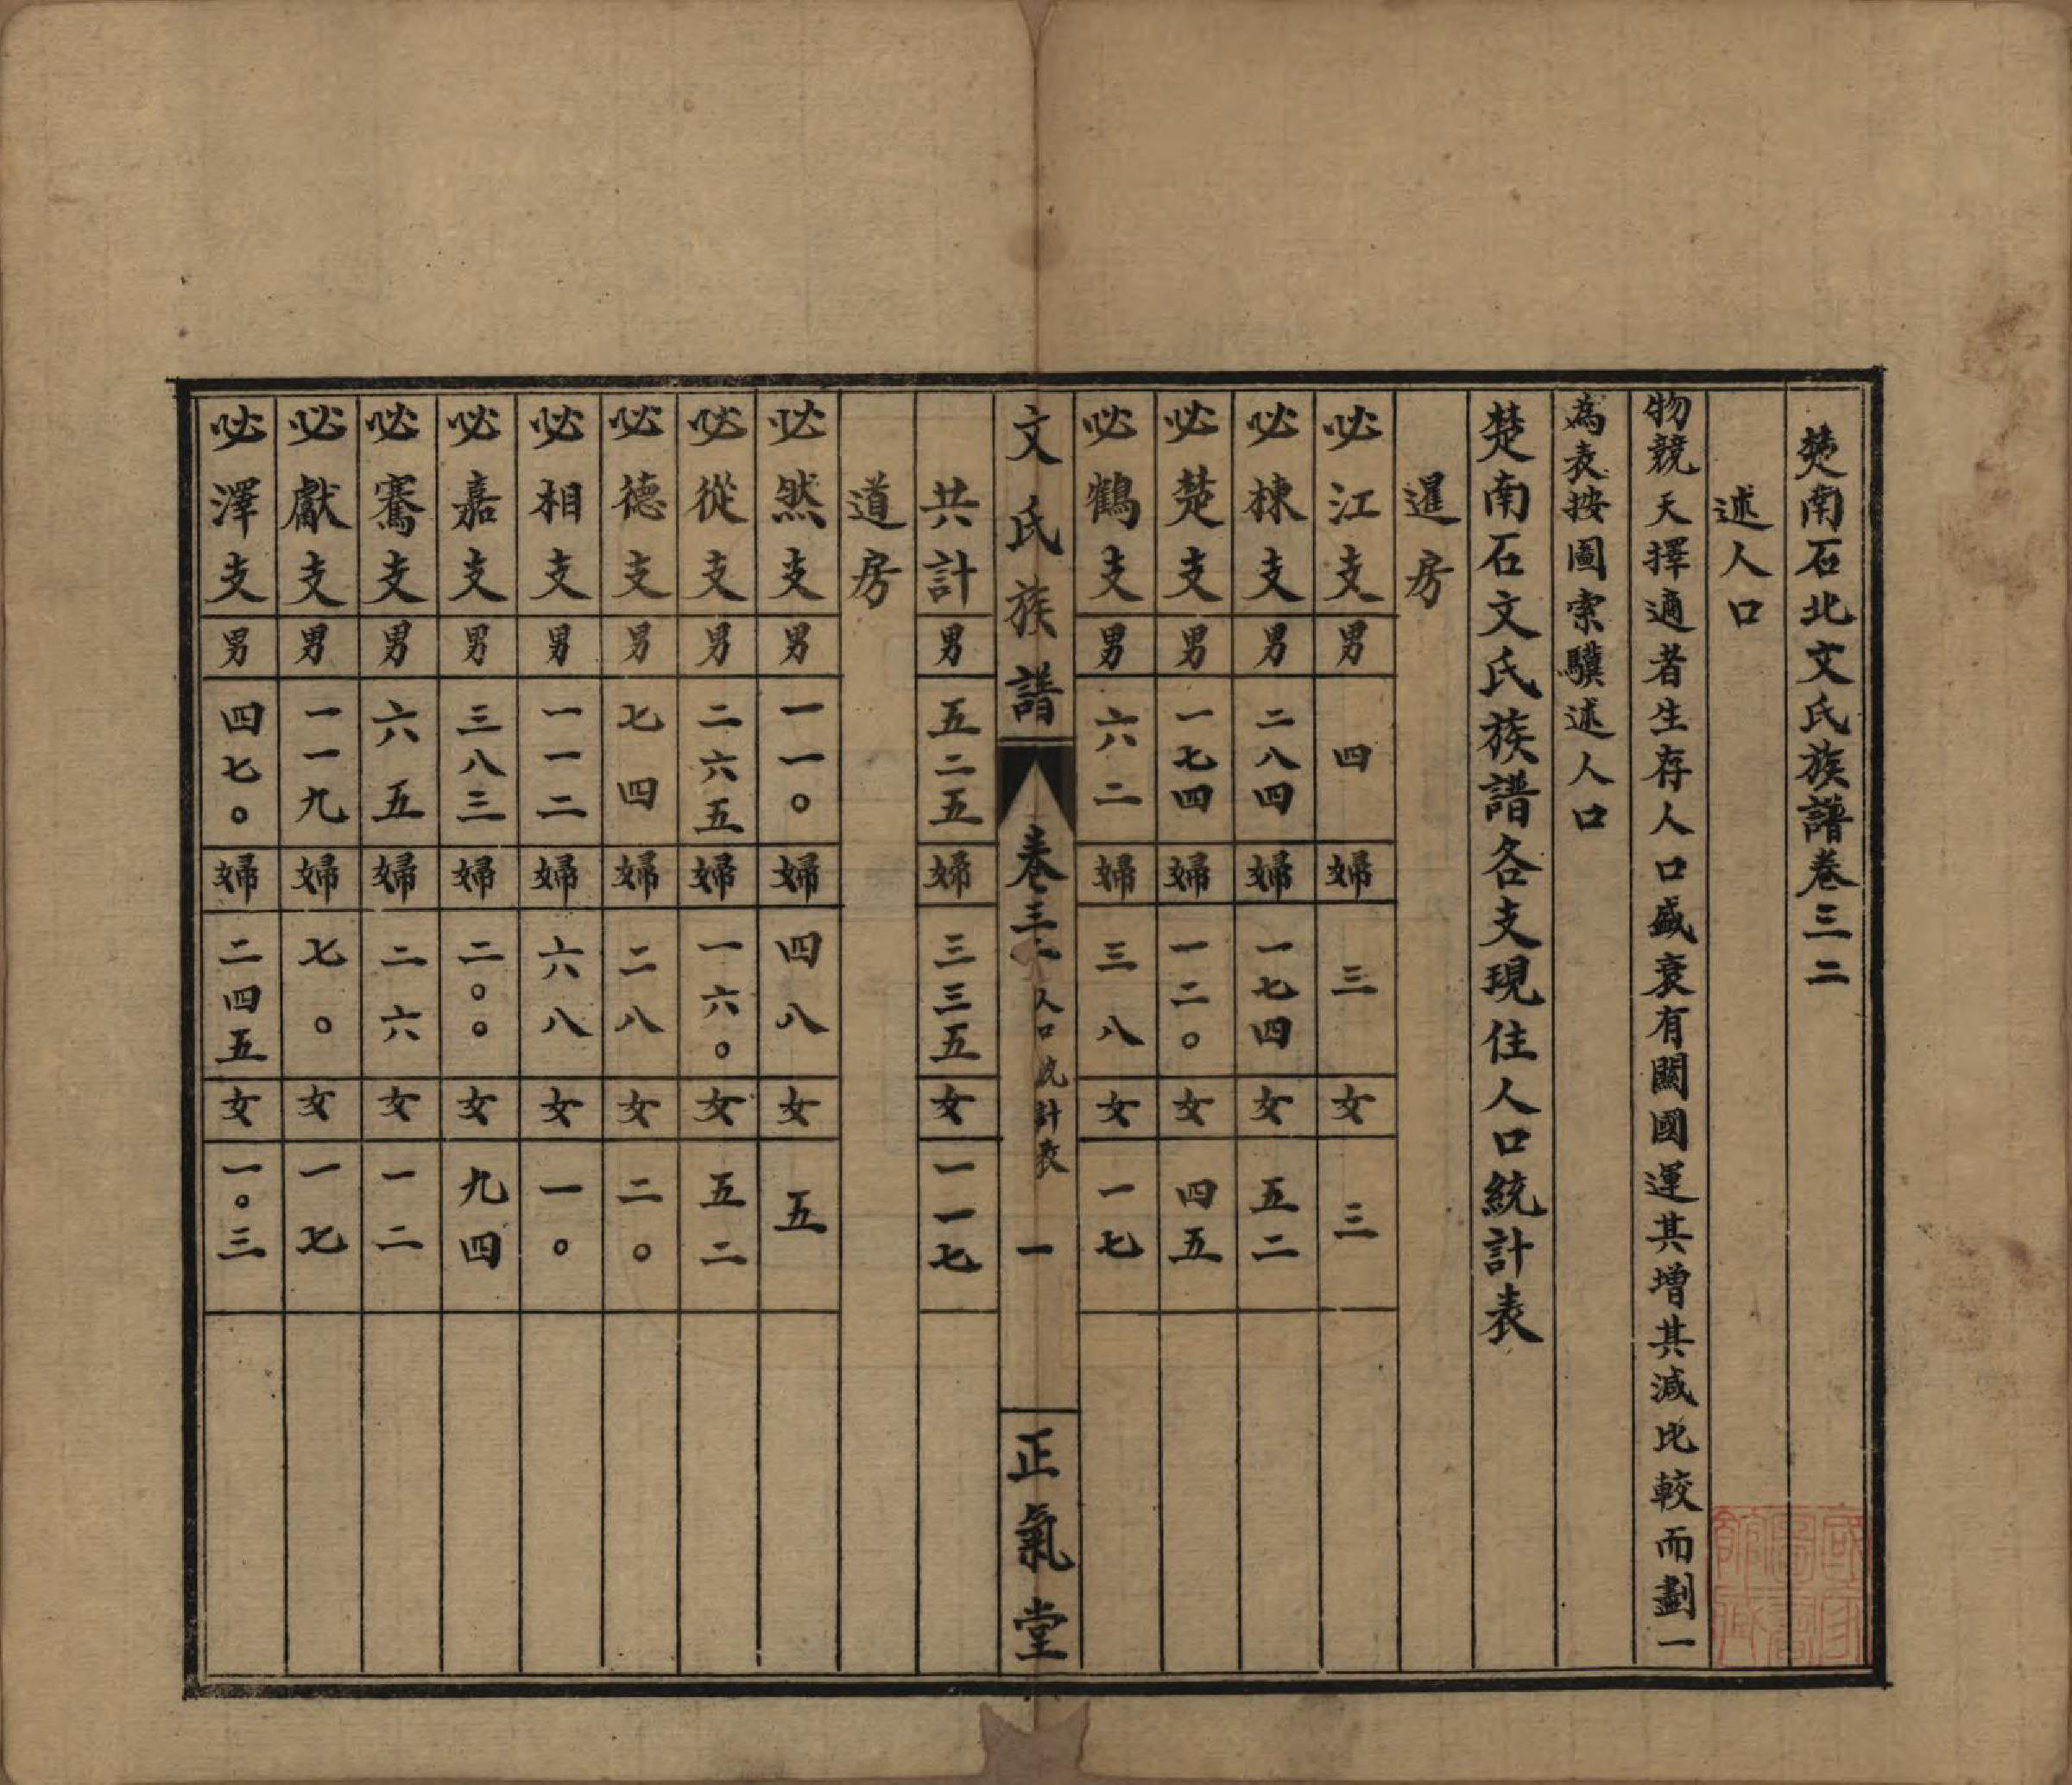 楚南石北文氏族譜卷三二
述人口
物競天擇適者生存人口盛衰有關國運其增其減比較而劃一
為表按圖索驥述人口
楚南石文氏族譜各支現住人口統計表
暹房
必江支 男 四 婦 三 女 三
必棟支 男 二八四 婦 一七四 女 五二
必楚支 男 一七四 婦 一二〇 女 四五
必鶴支 男 六二 婦 三八 女 一七
文氏族譜 卷三二 人口統計表 一 正氣堂
共計 男 五二五 婦 三三五 女 一一七
道房
必然支 男 一一〇 婦 四八 女 五
必從支 男 二六五 婦 一六〇 女 五二
必德支 男 七四 婦 二八 女 二〇
必相支 男 一一二 婦 六八 女 一〇
必嘉支 男 三八三 婦 二〇〇 女 九四
必騫支 男 六五 婦 二六 女 一二
必獻支 男 一一九 婦 七〇 女 一七
必澤支 男 四七〇 婦 二四五 女 一〇三
國家圖書館藏